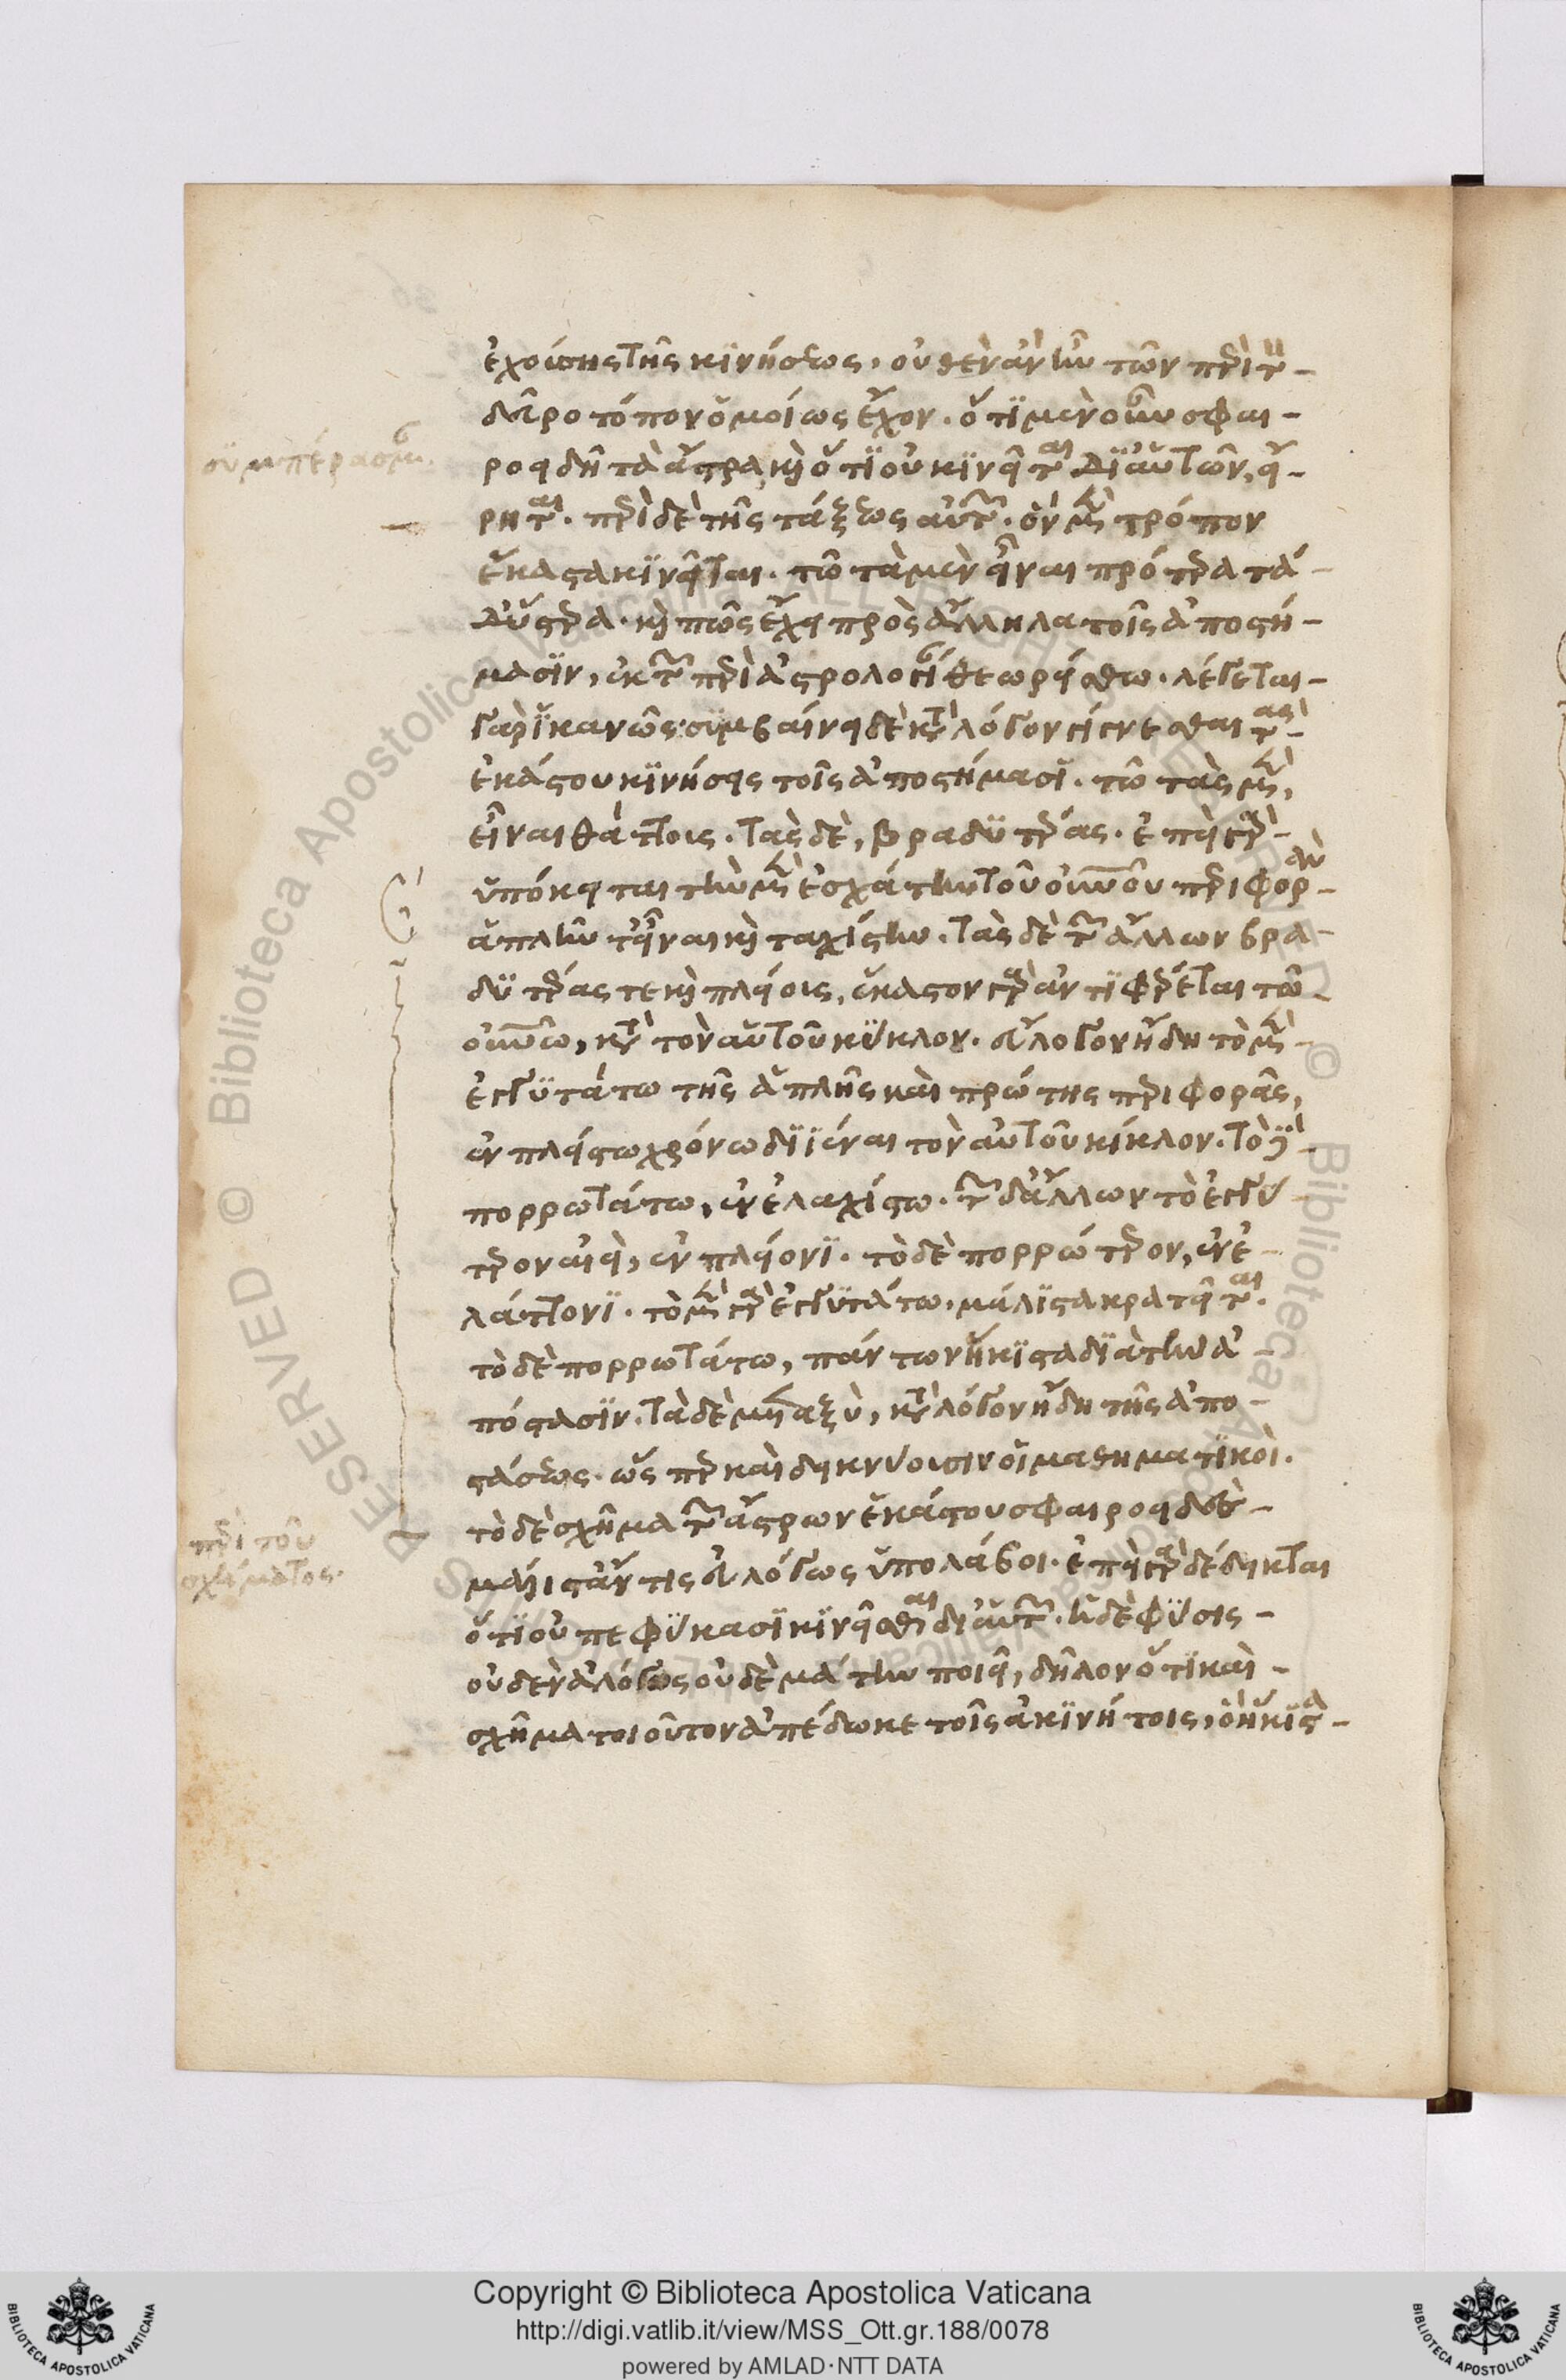 ἐχούσης τῆς κινήσεως, οὐθὲν ἂν ἦν τῶν περὶ τὸν -
δεῦρο τόπον ὁμοίως ἔχον. ὅτι μὲν οὖν σφαι -
συμπέρασμα
ροειδῆ τὰ ἄστρα, καὶ ὅτι οὐ κινεῖται δι' αὑτῶν, εἴ -
ρηται. περὶ δὲ τῆς τάξεως αὐτῶν. ὃν μὲν τρόπον
ἕκαστα κινεῖται. τῶ τὰ μὲν εἶναι πρότερα τὰ -
δ' ὕστερα. καὶ πῶς ἔχει πρὸς ἄλληλα τοῖς ἀποστή -
μασιν, ἐκ τῶν περὶ ἀστρολογί θεωρείσθω. λέγεται -
γὰρ ἱκανῶς· συμβαίνει δὲ κατὰ λόγον γίγνεσθαι τὰς -
ἑκάστου κινήσεις τοῖς ἀποστήμασι. τῶ τὰς μὲν,
εἶναι θάττους. τὰς δὲ, βραδυτέρας. ἐπεὶ γὰρ -
ὑπόκειται τὴν μὲν ἐσχάτην τοῦ οὐρανοῦ περιφορὰν -
ἁπλῆν τ' εἶναι καὶ ταχίστην. τὰς δὲ τῶν ἄλλων βρα -
δυτέρας τε καὶ πλείους, ἕκαστον γὰρ ἀντιφέρεται τῶ -
οὐρανῶ, κατὰ τὸν αὑτοῦ κύκλον. εὔλογον ἤδη τὸ μὲν -
ἐγγυτάτω τῆς ἁπλῆς καὶ πρώτης περιφορᾶς,
ἐν πλείστω χρόνω διϊέναι τὸν αὑτοῦ κύκλον. τὸ δὲ -
πορρωτάτω, ἐν ἐλαχίστω. τῶν δ' ἄλλων τὸ ἐγγύ
τερον αἰεὶ, ἐν πλείονι. τὸ δὲ πορρώτερον, ἐν ἐ -
λάττονι. τὸ μὲν γὰρ ἐγγυτάτω, μάλιστα κρατεῖται.
τὸ δὲ πορρωτάτω, πάντων ἥκιστα διὰ τὴν ἀ -
πόστασιν. τὰ δὲ μεταξὺ, κατὰ λόγον ἤδη τῆς ἀπο -
στάσεως. ὥσπερ καὶ δεικνύουσιν οἱ μαθηματικοὶ.
περὶ τοῦ
σχήματος.
τὸ δὲ σχῆμα τῶν ἄστρων ἑκάστου σφαιροειδὲς -
μάλιστ' ἄν τις εὐλόγως ὑπολάβοι. ἐπεὶ γὰρ δέδεικται
ὅτι οὐ πεφύκασι κινεῖσθαι δι' αὑτῶν. ἡ δὲ φύσις -
οὐδὲν ἀλόγως οὐδὲ μάτην ποιεῖ, δῆλον ὅτι καὶ -
σχῆμα τοιοῦτον ἀπέδωκε τοῖς ἀκινήτοις, ὃ ἥκιστα -
Copyright © Biblioteca Apostolica Vaticana
http://digi.vatlib.it/view/MSS_Ott.gr.188/0078
powered by AMLAD·NTT DATA